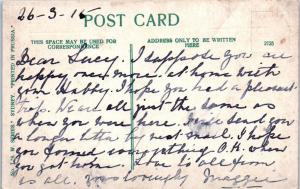 26-3-15
POST CARD
THIS SPACE MAY BE USED FOR
CORRESPONDENCE
ADDRESS ONLY TO BE WRITTEN
HERE
Dear Lucy. I suppose you are
happy once more at home with
your hubby. I hope you had a pleasant
trip. We are all just the same as
when you were here. I'll send you
a longter letter by next mail. I hope
you found everything O.K. when
you got home. Love to all from
us all. Yours lovingly Maggie
"PRINTED IN PRUSSIA."